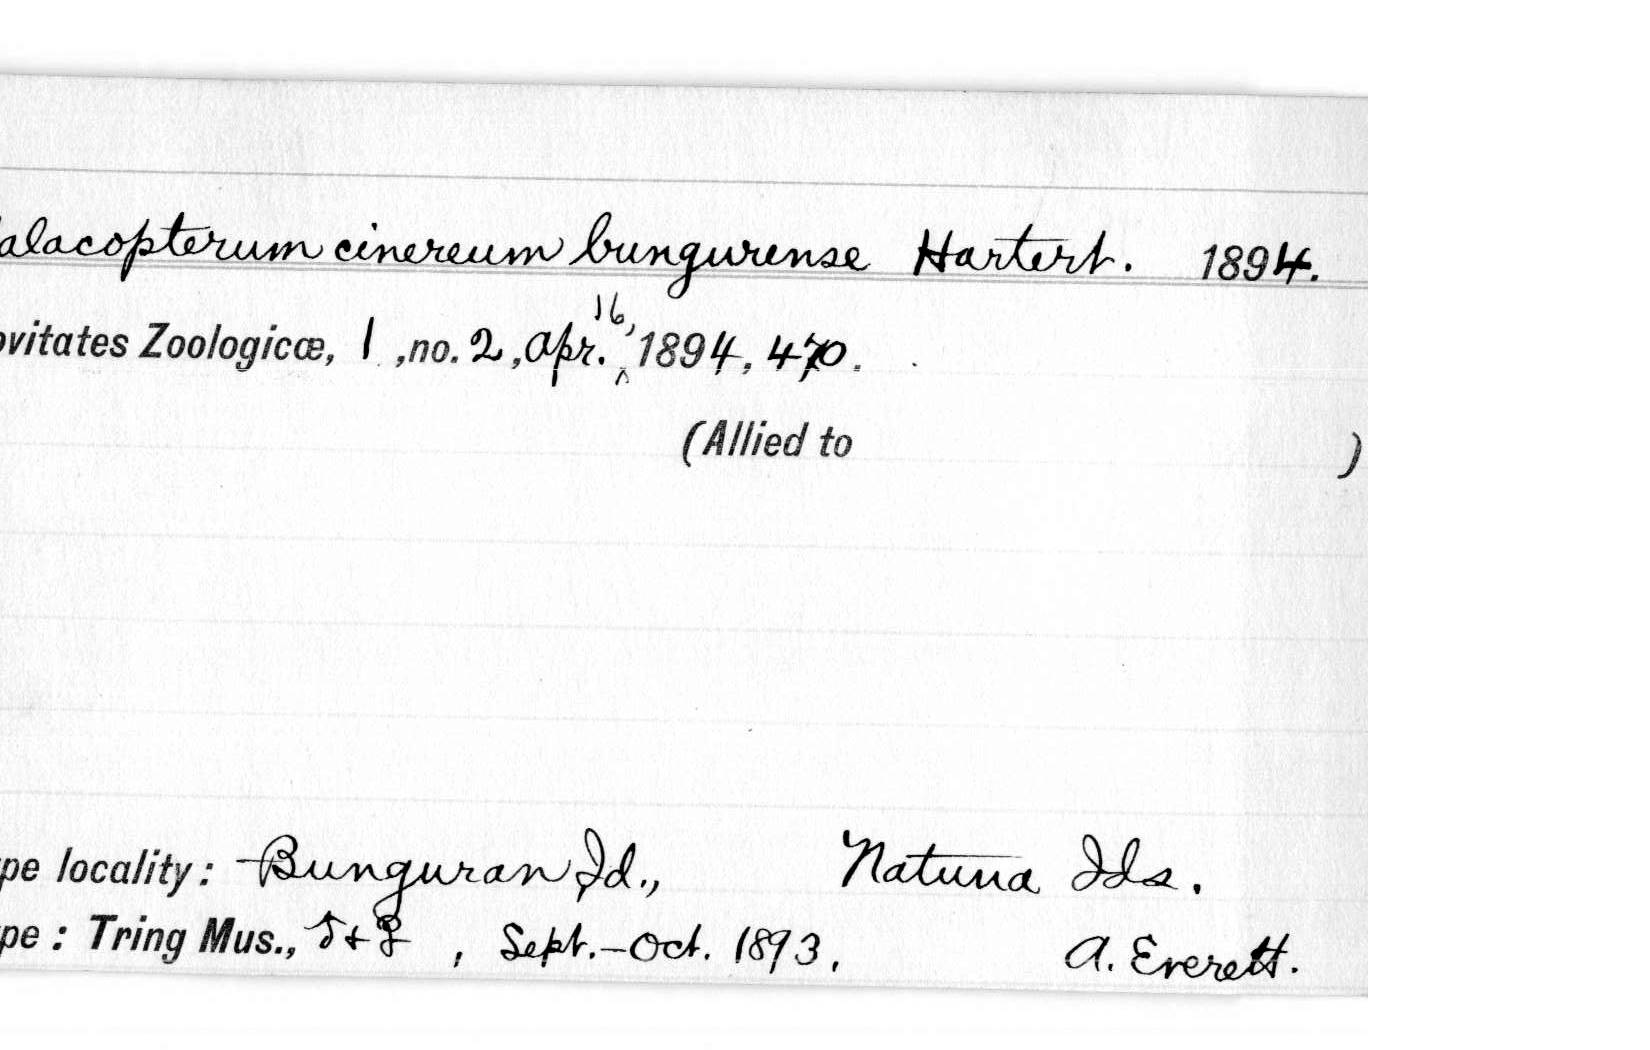 alacopterum cinereum bungurense Hartert. 1894.
ovitates Zoologicæ, 1, no. 2, Apr. 16, 1894, 470.
(Allied to )
pe locality: Bunguran Id., Natuna Ids.
pe: Tring Mus., ♂ + ♀, Sept.-Oct. 1893, A. Everett.